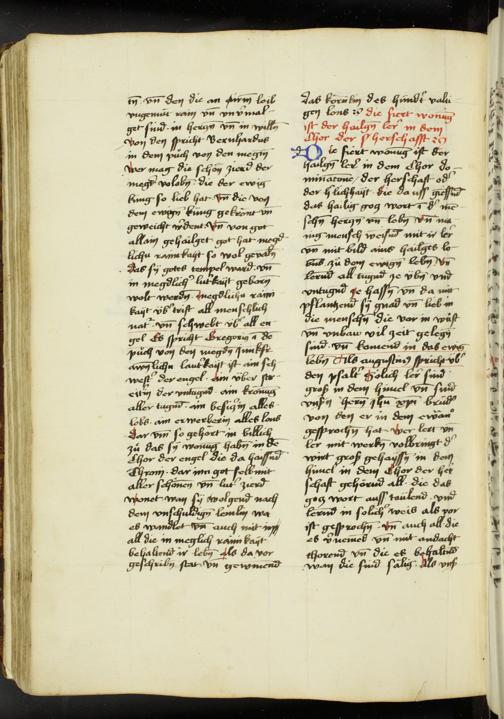 in · vn̄ den die an jrem leib
vngenött rain vn̄ vnuermal
get sind · in herczn vn̄ in willn
Von den spricht Bernhardus
in dem půch von den megtn
wer mag die schön zierd der
magt voloben die der ewig
king so lieb hat · vn̄ die von
dem ewign king gekrönt vn̄
gereicht werdent · Vn̄ von got
allain gehailget got hat megd
lichn rainkait so wol geualn
das sy gotes tempel ward · vn̄
in megdlichr lutkait geborn
wolt werdn · megdlichn rain
kait vbertrift all menschlich
natur vn̄ schwebt vbr all en
gel Es spricht Gregorius in dem
půch von den megdn junkfr
awnlichn lautkait ist ain sch
westr der engel · ain vberstr
eiterin der vntugnd · ain kröng
aller tugnd · ain besiczin alles
lobs · ain erwerberin alles lons
Dar vm so gehört in billich
zů das sy wonung habn in de
Chor der engel die da haissnd
Throni · dar inn got selb mit
aller schönen vn̄ lutr zierd
wonet wan sy volgend nach
dem vnschuldign lemlin wa
es wandlet vn̄ auch mit im
all die in meglichr rainkait
behaltend ir lebn · Als da vor
geschribn stat · vn̄ gewinend
das körnlin des hundert valti
gen lons · die fiert wonung
ist der hailgn ler in dem
Chor der herschafft
Die fiert wonung ist der
hailgn ler in dem Chor do
minacione der herschaft oder
der hlichhait die da vss giessnd
das hailig gog wort in die me
schn herczn vn̄ lebn vn̄ ma
ng mensch weisend mit ir ler
vn̄ mit bild ains hailgen le
bns zů dem ewign lebn vn̄
lernd all tugnd ze übn vnd
vntugnd ze hassn vn̄ da mit
pflanczend sy gnad vn̄ lieb in
die menschn die vor in wůst
vn̄ vnbaw vil zeit gelegn
sind vn̄ komend in das ewig
lebn Als augustinus spricht vbr
den psaltr Solich lerer sind
groß in dem himel vn̄ sind
vnsers herrn jhu xpi brüdr
von den er in dem ewangelio
gesprochn hat · wer lert vn̄
ler mit werkn volbringt der
wirt groß gehaissn in dem
himel in dem Chor der her
schaft gehörnd all · die das
gocz wort auss tailend · vnd
lernd in solichr weis als vor
ist gesprochn · vn̄ auch all die
es vernemen vn̄ mit andacht
ehörend vn̄ die es behaltend
wan die sind sälig · Als vnser